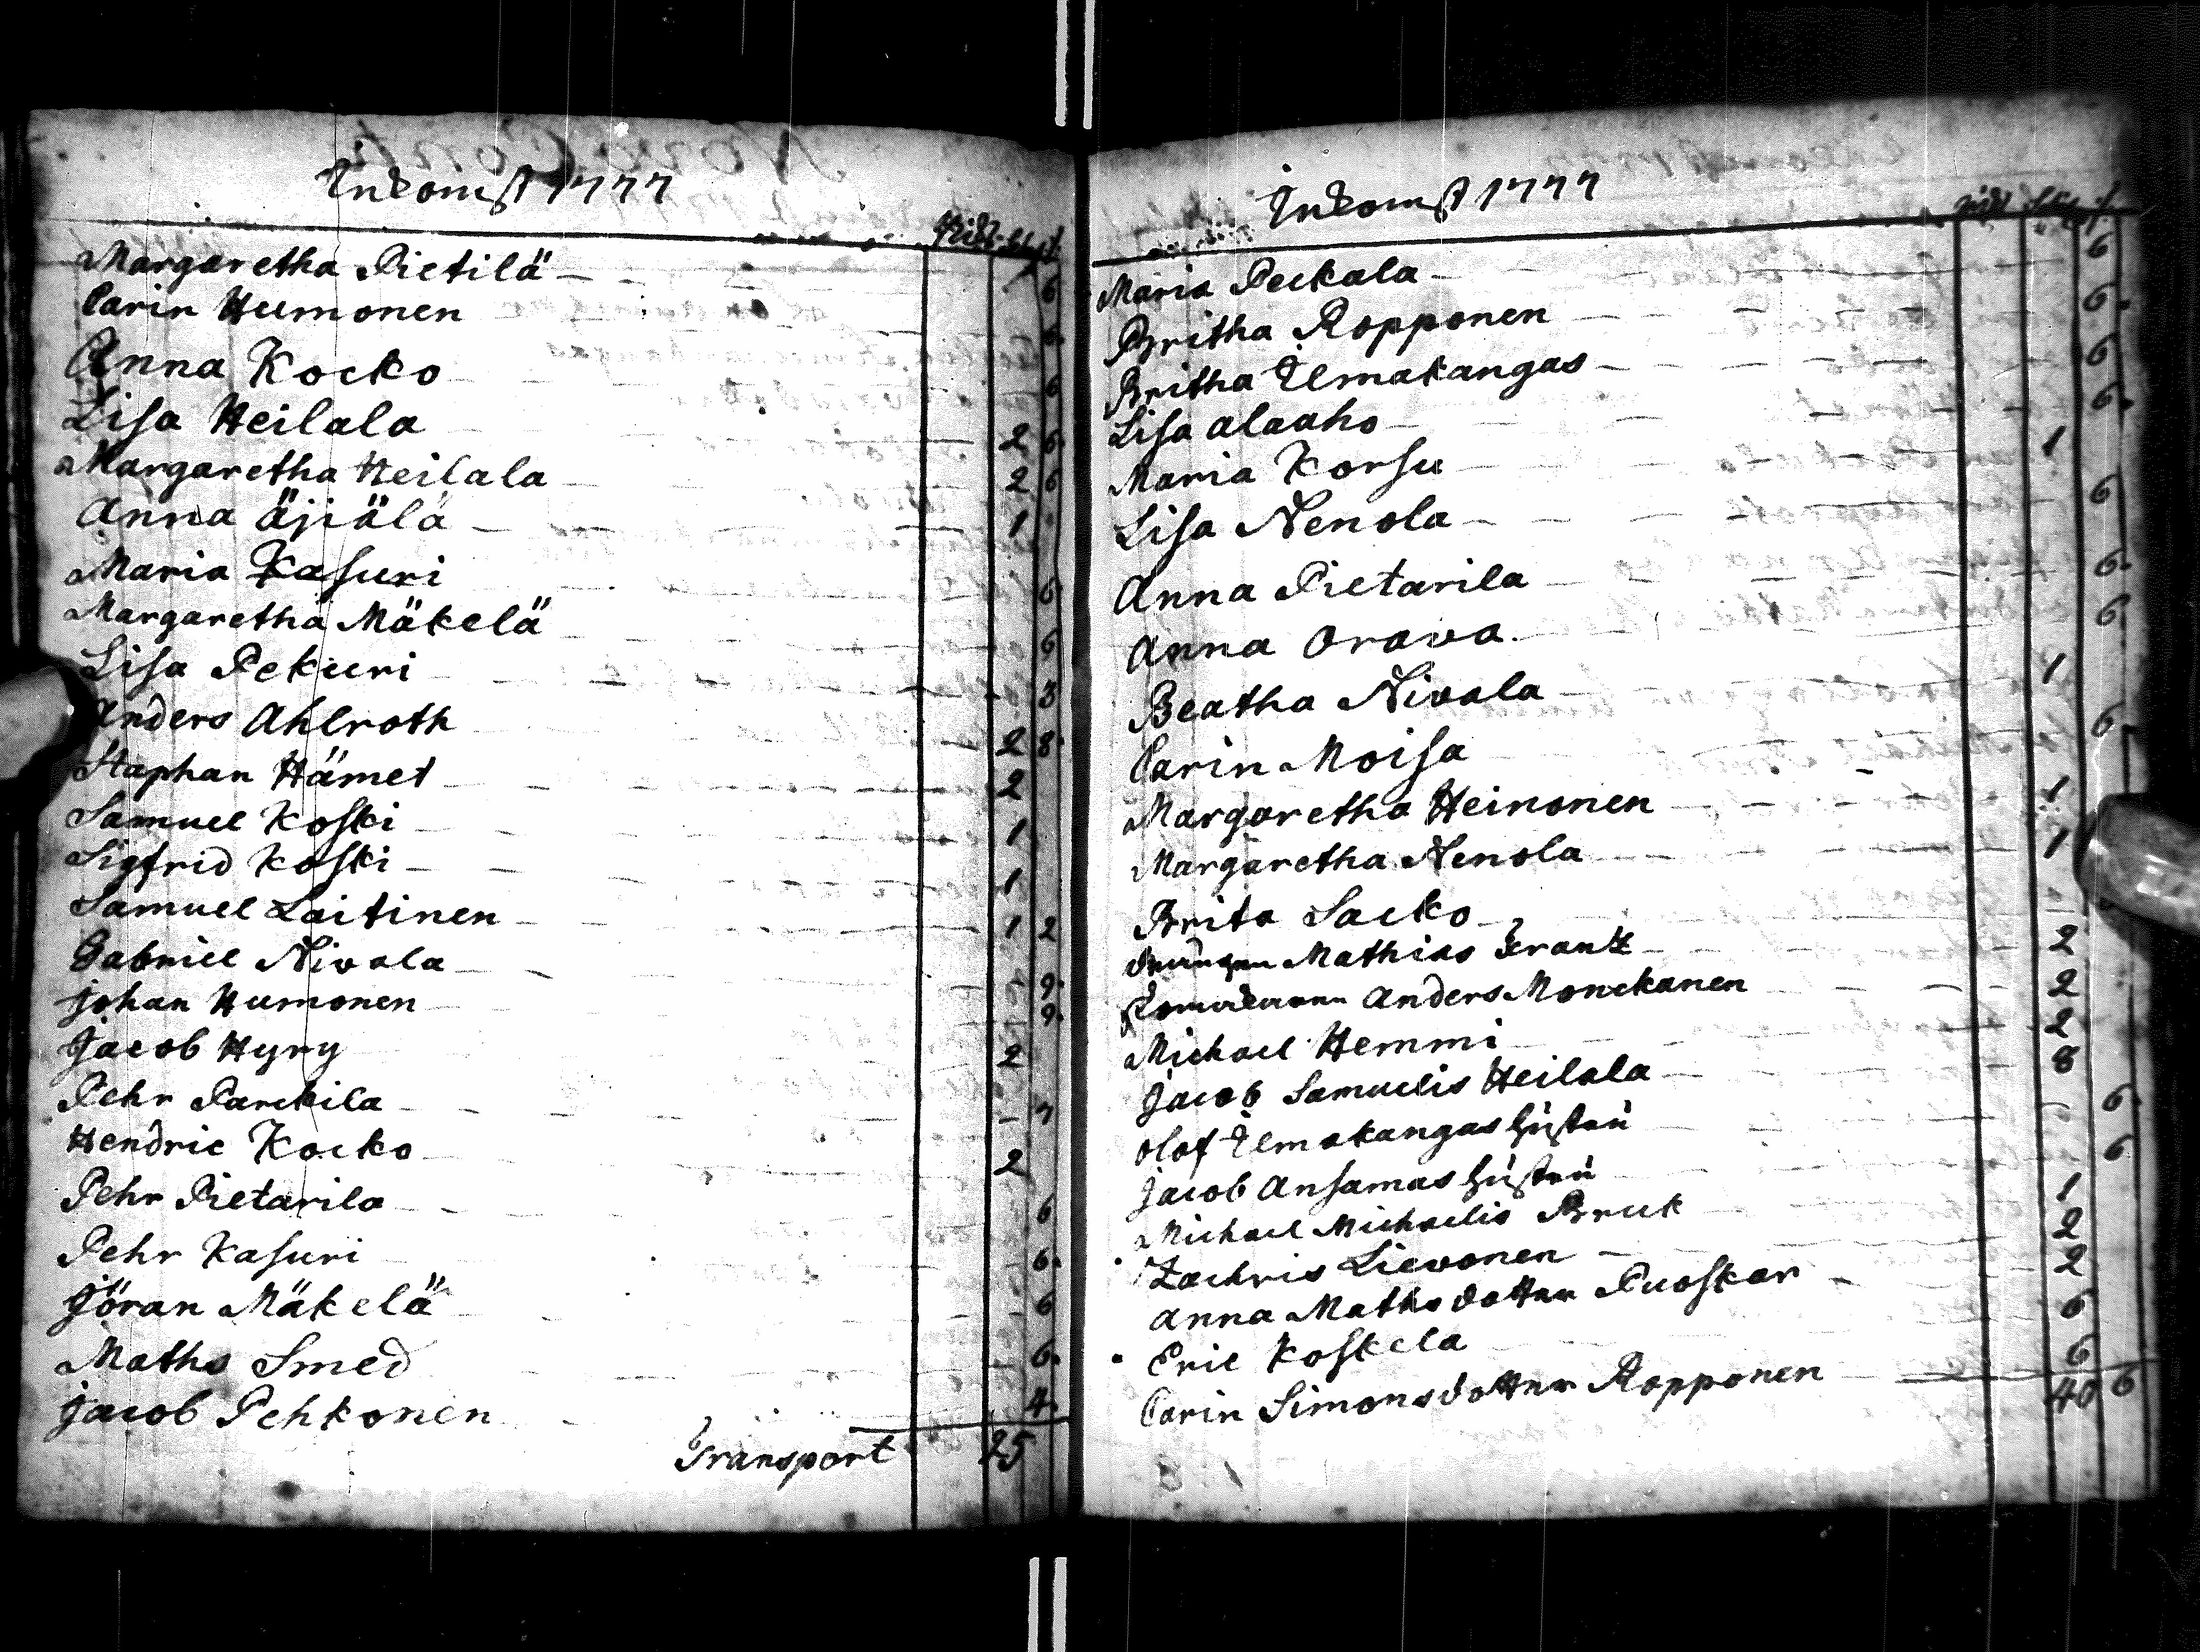 Inkomst 1777
Ridr sk st
Margaretha Pietilä 6
Carin Humonen 6
Anna Kocko 6
Lisa Heilala 2 6
Margaretha Heilala 2 6
Anna äjiälä 1
Maria Kasuri 6
Margaretha Mäkelä 6
Lisa Pekuri 3
Anders Ahlroth 2 8
Staphan Hämet 2
Samuel Koski 1
Sigfrid Koski 1
Samuel Laitinen 1 2
Gabriel Nivala 9
Johan Humonen 9
Jacob Hyry 2
Pehr Parckila 7
Hendric Kocko 2
Pehr Pietarila 6
Pehr Kasuri 6
Jöran Mäkelä 6
Maths Smed 6
Jacob Pehkonen 4
Transport 25
Inkomst 1777
Maria Peckala 6
Britha Ropponen 6
Britha Ilmakangas 6
Lisa alaaho 6
Maria Korsu 1
Lisa Nenola 6
Anna Pietarila 6
Anna Orava 6
Beatha Nivala 1
Carin Moisa 6
Margaretha Heinonen 1
Margaretha Nenola 1
Brita Sacko
Mathias Frantz 2
Anders Monckanen 2
Michael Hemmi 2
Jacob Samuelis Heilala 8
Olof Ilmakangas hustru 6
Jacob Ansamas hustru 6
Michael Michaelis Bruk 1
Zachris Lievonen 2
Anna Mathsdotter Puoskar 2
Eric Koskela 6
Carin Simonsdotter Ropponen 6
40 6